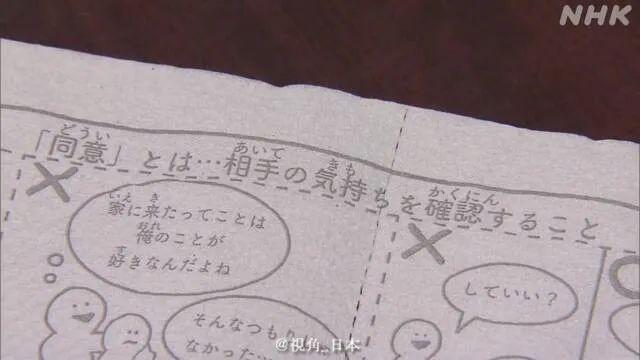 NHK
「同意」とは…相手の気持ちを確認すること
家に来たってことは
俺のことが
好きなんだよね
そんなつもり
なかった…
していい?
@視角_日本